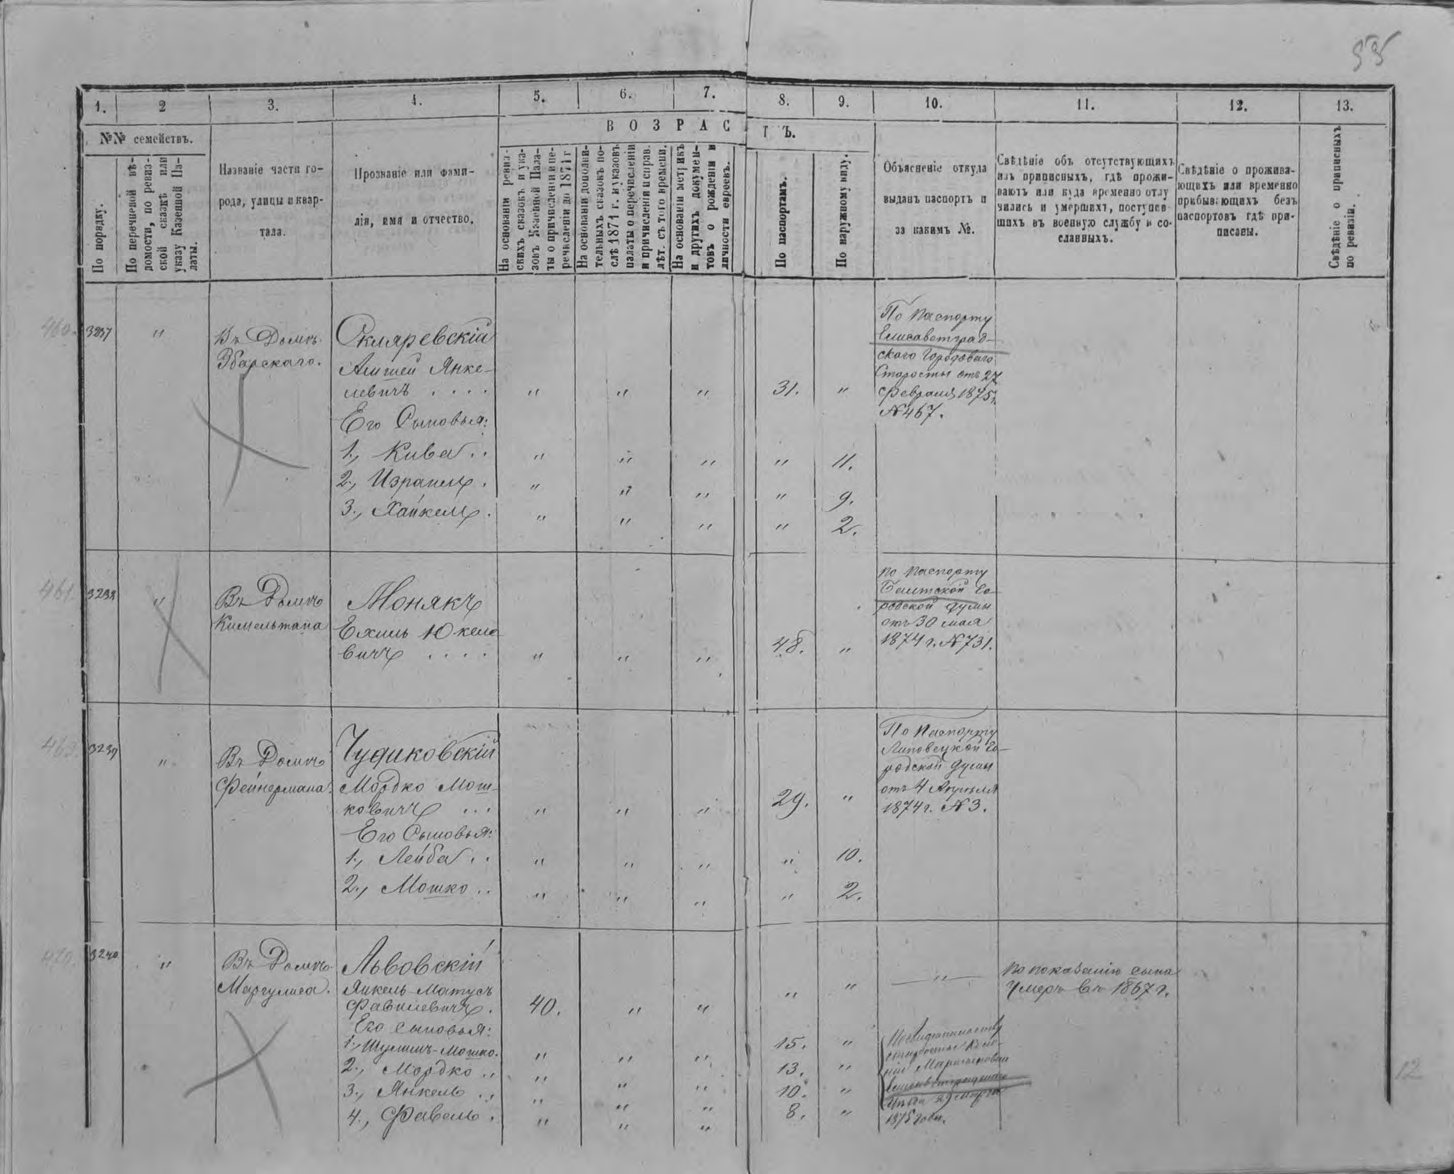 55
1. 2 3. 4. 5. 6. 7. 8. 9. 10. 11. 12. 13.
№№ семействъ.
По порядку.
По перечневой вѣ-
домости, по ревиз-
ской сказкѣ или
указу Казенной Па-
латы.
Названіе части го-
рода, улицы и квар-
тала.
Прозваніе или фами-
лія, имя и отчество.
ВОЗРАСТЪ.
На основаніи ревиз-
скихъ сказокъ и ука-
зовъ Казенной Пала-
ты о причисленіи и пе-
речисленіи до 1871 г
На основаніи дополни-
тельныхъ сказокъ по-
слѣ 1871 г. и указовъ
палаты о перечисленіи
и причисленіи и справ.
лѣт. съ того времени.
На основаніи метрикъ
и другихъ докумен-
товъ о рожденіи и
личности евреевъ.
По паспортамъ.
По наружному виду.
Объясненіе откуда
выданъ паспортъ и
за какимъ №.
Свѣдѣніе объ отсутствующихъ
изъ приписныхъ, гдѣ прожи-
ваютъ или куда временно отлу
чились и умершихъ, поступив-
шихъ въ военную службу и со-
сланныхъ.
Свѣдѣніе о прожива-
ющихъ или временно
прибывающихъ безъ
паспортовъ гдѣ при-
писаны.
Свѣдѣніе о приписныхъ
по ревизіи.
460. 3237 "
Въ Домѣ
Збарскаго.
Скляревскій
Янке-
левичъ . . . . " " " 31. "
Его Сыновья:
1., Кива . . " " " " 11.
2., Израиль . " " " " 9.
3., Хайкель . " " " " 2.
По паспорту
Елисаветград-
скаго Городоваго
Старосты отъ 27
февраля 1875 г.
№ 467.
461. 3238 "
Въ Домѣ
Кимельмана
Монякъ
Ехиль Юкело
вичъ . . . . " " " 48. "
по паспорту
Балтской Го-
родской думы
отъ 30 мая
1874 г. № 731.
3239 "
Въ Домѣ
Фейнермана
Чудиковскій
Мордко Мош-
ковичъ . . . " " " 29. "
Его Сыновья:
1., Лейба . . " " " " 10.
2., Мошко . . " " " " 2.
По паспорту
Липовецкой Го-
родской думы
отъ 4 Апрѣля
1874 г. № 3.
3240 "
Въ Домѣ
Маргулиса.
Львовскій
Янкель-Матусъ
Фавилевичъ . 40. " " " " "
Его сыновья:
1., Шулимъ-Мошко. " " " 15. "
2., Мордко . . " " " 13. "
3., Янкель . . " " " 10. "
4., Фавель . " " " 8. "
по показанію сына
умеръ въ 1867 г.
1875 года.
12